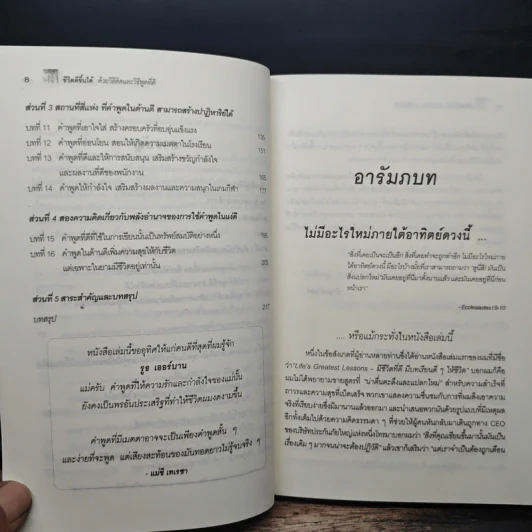 8 ชีวิตดีขึ้นได้ ด้วยวิธีคิดและวิธีพูดที่ดี
ส่วนที่ 3 สถานที่สี่แห่ง ที่คำพูดในด้านดี สามารถสร้างปาฏิหาริย์ได้
บทที่ 11 คำพูดที่เอาใจใส่ สร้างครอบครัวที่อบอุ่นแข็งแรง 135
บทที่ 12 คำพูดที่อ่อนโยน สอนให้เกิดความเมตตาในโรงเรียน 151
บทที่ 13 คำพูดที่ดีและให้การสนับสนุน เสริมสร้างขวัญกำลังใจ
และผลงานที่ดีของพนักงาน
บทที่ 14 คำพูดให้กำลังใจ เสริมสร้างผลงานและความสนุกในเกมกีฬา
ส่วนที่ 4 สองความคิดเกี่ยวกับพลังอำนาจของการใช้คำพูดในแง่ดี
บทที่ 15 คำพูดดีที่ใช้ในการเขียนนั้นเป็นทรัพย์สมบัติอย่างหนึ่ง
บทที่ 16 คำพูดในด้านดีเพิ่มความสุขให้กับชีวิต
แต่เฉพาะในยามมีชีวิตอยู่เท่านั้น
ส่วนที่ 5 สาระสำคัญและบทสรุป
บทสรุป 217
หนังสือเล่มนี้ขออุทิศให้แก่คนดีที่สุดที่ผมรู้จัก
รูธ เออร์บาน
แม่ครับ คำพูดที่ให้ความรักและกำลังใจของแม่นั้น
ยังคงเป็นพรอันประเสริฐที่ทำให้ชีวิตผมงดงามขึ้น
คำพูดที่มีเมตตาอาจจะเป็นเพียงคำพูดสั้น ๆ
และง่ายที่จะพูด แต่เสียงสะท้อนของมันทอดยาวไม่รู้จบจริง ๆ
- แม่ชี เทเรซา
อารัมภบท
ไม่มีอะไรใหม่ภายใต้อาทิตย์ดวงนี้ ...
"สิ่งที่เคยเป็นจะเป็นอีก สิ่งที่เคยทำจะถูกทำอีก ไม่มีอะไรใหม่ภาย
ใต้อาทิตย์ดวงนี้ มีอะไรบ้างมั้ยที่เราสามารถถามว่า 'ดูนี่สิ! มันเป็น
สิ่งแปลกใหม่' มันเคยอยู่ที่นี่มาตั้งนานแล้ว และมันเคยอยู่ที่นี่มาก่อน
หน้าเรา"
–Ecclesiastes1:9-10
.... หรือแม้กระทั่งในหนังสือเล่มนี้
หนึ่งในข้อสังเกตที่ผู้อ่านหลายท่านซึ่งได้อ่านหนังสือเล่มแรกของผมที่มีชื่อ
ว่า "Life's Greatest Lessons - มีชีวิตที่ดี มีบทเรียนดี ๆ ให้ชีวิต" บอกผมก็คือ
ผมไม่ได้พยายามขายสูตรที่ "น่าตื่นตะลึงและแปลกใหม่" สำหรับความสำเร็จที่
ถาวรและความสุขที่เบ็ดเสร็จ พวกเขาแสดงความชื่นชมกับการที่ผมดึงเอาความ
จริงที่เรียบง่ายซึ่งมีมานานแล้วออกมา และนำเสนอพวกมันด้วยรูปแบบที่มีเหตุผล
อีกทั้งเต็มไปด้วยความคิดธรรมดา ๆ ที่ช่วยให้ผู้คนหันกลับมาเดินถูกทาง CEO
ของบริษัทประกันภัยใหญ่แห่งหนึ่งโทรมาบอกผมว่า "สิ่งที่คุณเขียนขึ้นมานั้นมันเป็น
เรื่องเดิม ๆ มากจนน่าจะต้องปฏิวัติ" แล้วเขาก็เสริมว่า "แต่เราจำเป็นต้องถูกเตือน